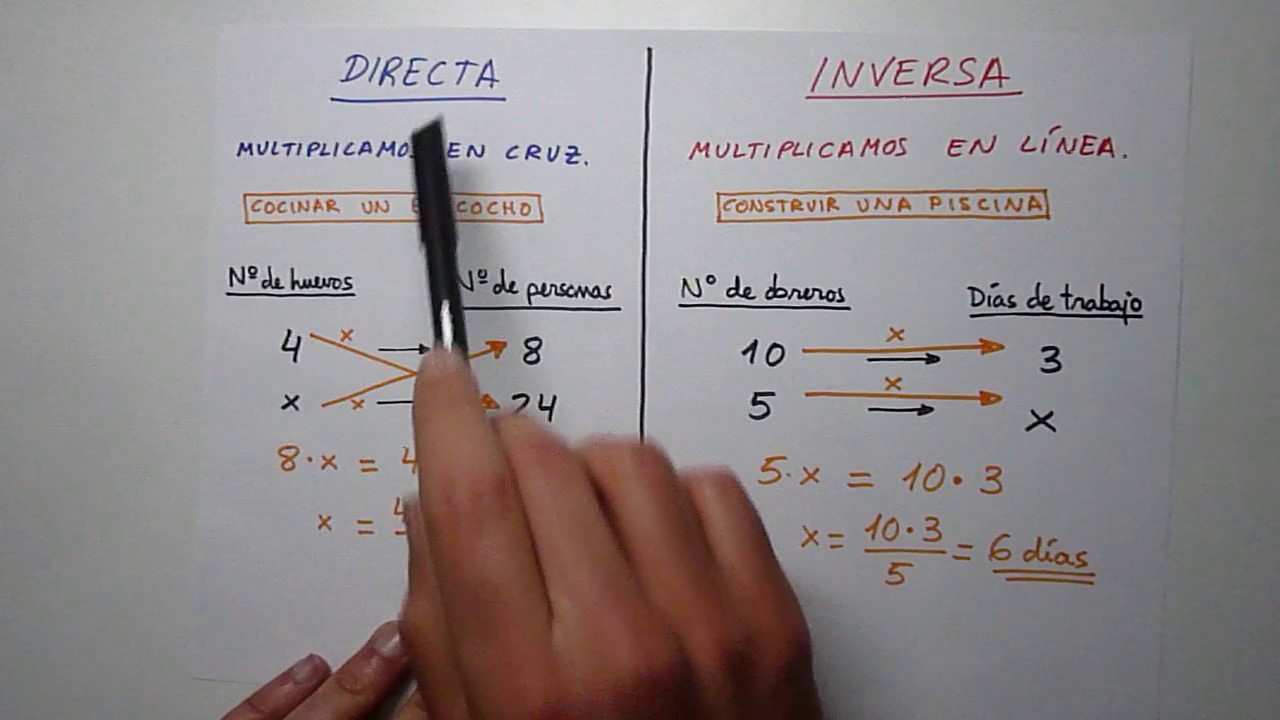 DIRECTA
MULTIPLICAMOS EN CRUZ.
COCINAR UN COCHO
Nº de huevos
Nº de personas
4 x 8
x x 24
8·x = 4
x = 4
INVERSA
MULTIPLICAMOS EN LÍNEA.
CONSTRUIR UNA PISCINA
Nº de obreros
Días de trabajo
10 x 3
5 x x
5·x = 10·3
x = 10·3 / 5 = 6 días